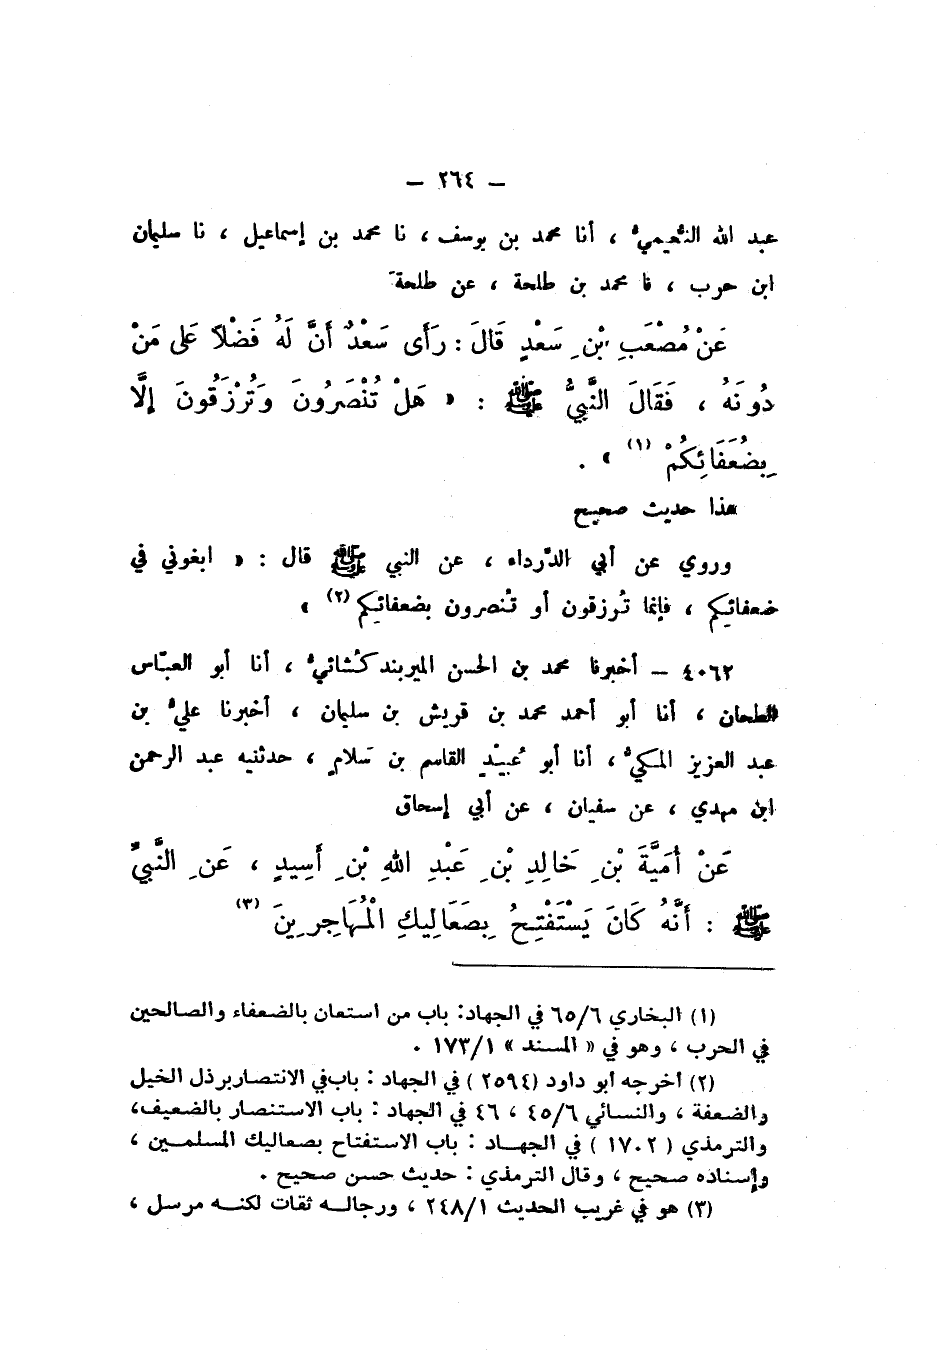 — ٢٦٤ —
عبد الله النُّعيميُّ ، أنا محمد بن يوسف ، نا محمد بن إسماعيل ، نا سليمان
ابن حرب ، نا محمد بن طلحة ، عن طلحة
عَنْ مُصْعَبِ بْنِ سَعْدٍ قَالَ : رَأَى سَعْدٌ أَنَّ لَهُ فَضْلًا عَلَى مَنْ
دُونَهُ ، فَقَالَ النَّبِيُّ ﷺ : « هَلْ تُنْصَرُونَ وَتُرْزَقُونَ إِلَّا
بِضُعَفَائِكُمْ (١) » .
هذا حديث صحيح
وروي عن أبي الدَّرداء ، عن النبي ﷺ قال : « ابغوني في
ضعفائِكم ، فإنما تُرزقون أو تُنصرون بضعفائِكم (٢) »
٤٠٦٢ — أخبرنا محمد بن الحسن الميربند كُشائيُّ ، أنا أبو العبّاس
الطحان ، أنا أبو أحمد محمد بن قريش بن سليمان ، أخبرنا عليُّ بن
عبد العزيز المكيُّ ، أنا أبو عُبيْدٍ القاسم بن سَلامٍ ، حدثنيه عبد الرحمن
ابن مهدي ، عن سفيان ، عن أبي إسحاق
عَنْ أُمَيَّةَ بْنِ خَالِدِ بْنِ عَبْدِ اللهِ بْنِ أَسِيدٍ ، عَنِ النَّبِيِّ
ﷺ : أَنَّهُ كَانَ يَسْتَفْتِحُ بِصَعَالِيكِ الْمُهَاجِرِينَ (٣)
(١) البخاري ٦٥/٦ في الجهاد: باب من استعان بالضعفاء والصالحين
في الحرب ، وهو في « المسند » ١٧٣/١ .
(٢) أخرجه أبو داود (٢٥٩٤ ) في الجهاد : باب في الانتصار برذل الخيل
والضعفة ، والنسائي ٤٥/٦ ، ٤٦ في الجهاد : باب الاستنصار بالضعيف،
والترمذي ( ١٧٠٢ ) في الجهاد : باب الاستفتاح بصعاليك المسلمين ،
وإسناده صحيح ، وقال الترمذي : حديث حسن صحيح .
(٣) هو في غريب الحديث ٢٤٨/١ ، ورجاله ثقات لكنه مرسل ،